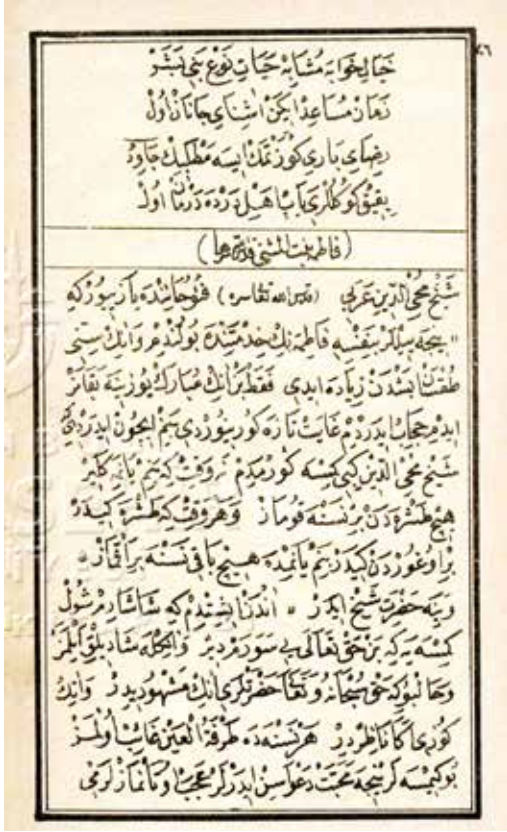 ٤٦
خيالخوابه مشابه حيات نوع بنى بشر
زمان مساعد ايكن آشناى جانان اول
رضاى يارى كوزتمك ايسه مطلبك جاويد
ييقيق كوكللرى ياپ اهل درده درمان اول
(فاطمه بنت المثنى قدس سرها)
شيخ محى الدين عربى (قدس الله تعالى سره) فتوحاتنده يازيوركه
« نيجه سنه لر بنفسه فاطمه نك خدمتنده بولندم وانك سنى
طقسان بشدن زياده ايدى فقط بن انك مبارك يوزينه نظر
ايدم حجاب ايدردم غايت تازه كورينوردى بنم ايچون ايدردى
شيخ محى الدين كبى كيمسه كورمدم نه وقت كه بنم يانمه كلير
هيچ طشره دن بر نسنه قوماز وهر وقت كه طشره كيدر
بر اوغوردن كيدر بنم يانمده هيچ باقى نسنه براقماز »
وينه حضرت شيخ ايدر « اندن ايشتدم كه شاشارم شول
كيسه يه كه بن حق تعالى يى سورم دير وانكله شاد بلق ايلمز
وحالبوكه حق سبحانه وتعالى حضرتلرى انك مشهوديدر وانك
كوزى اكا ناظردر هر نسنه ده طرفة العين غائب اولمز
بوكيمسه لر نيجه محبت دعواسن ايدرلر عجبا واتانمازلرمى